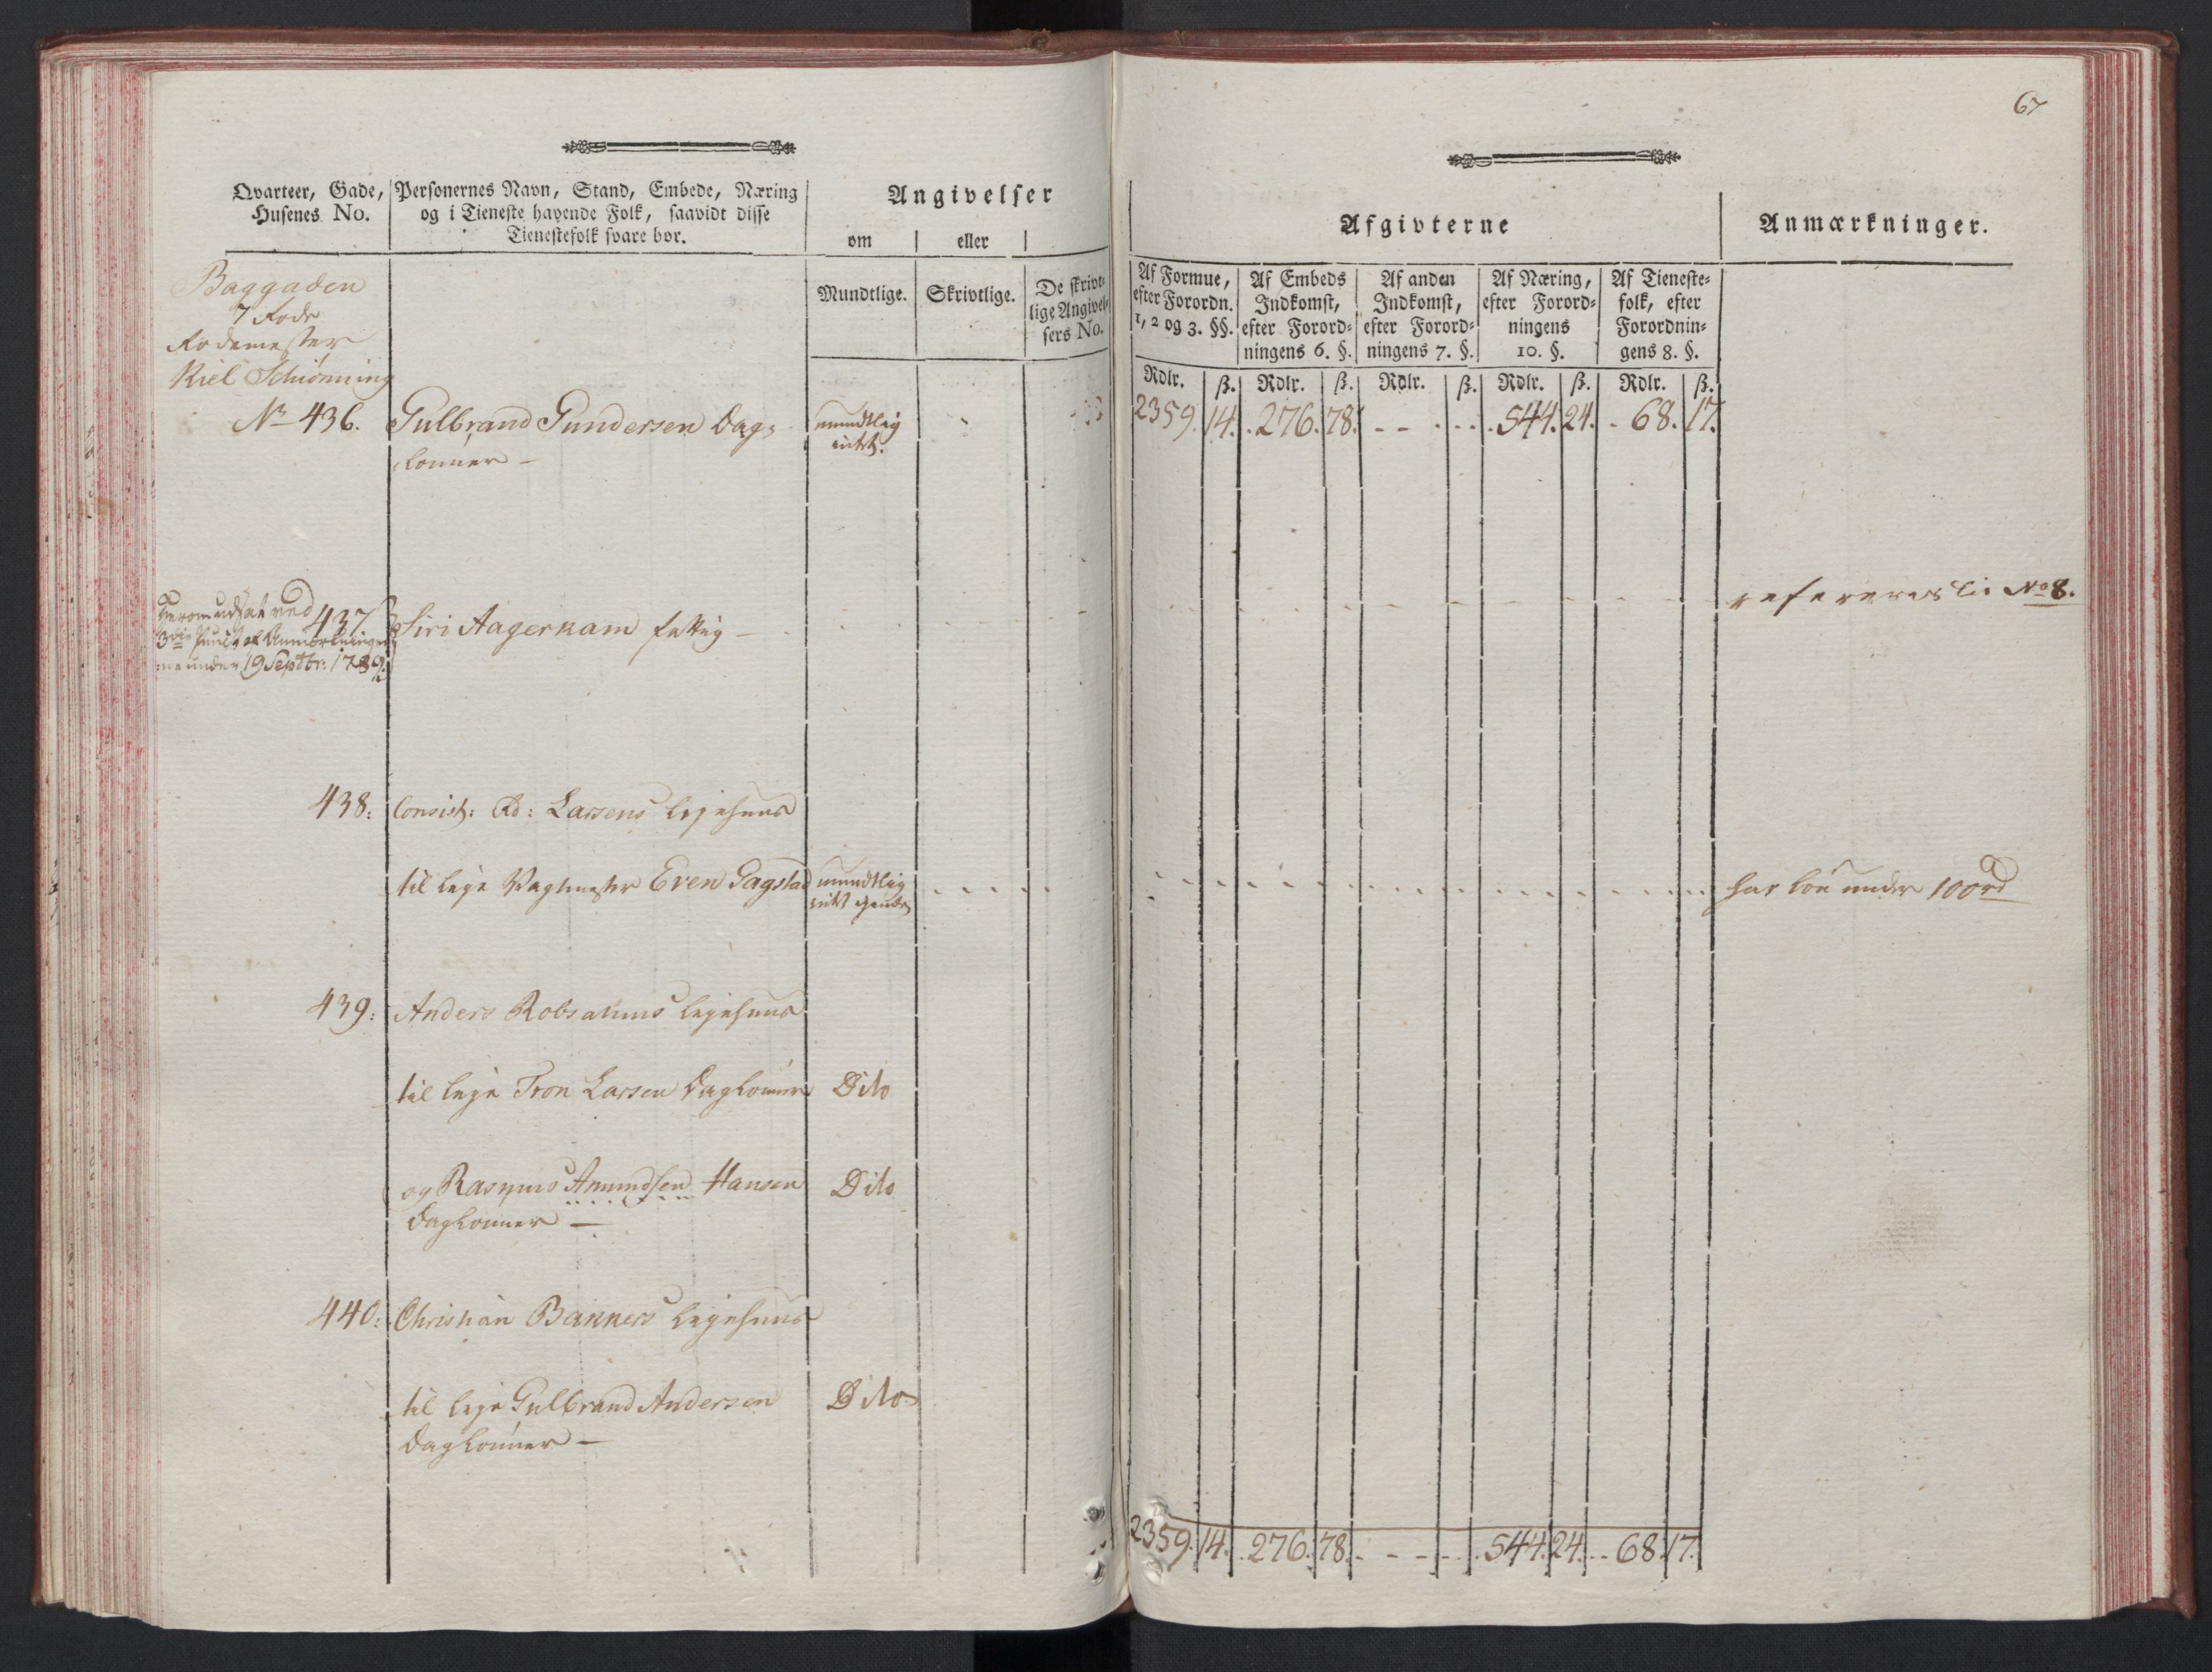 67
Qvarteer, Gade,
Husenes No.
Personernes Navn, Stand, Embede, Næring
og i Tieneste havende Folk, saavidt disse
Tienestefolk svare bør.
Angivelser
om eller
Mundtlige. Skrivtlige. De skrivt-
lige Angivel-
sers No.
Afgivterne
Anmærkninger.
Af Formue,
efter Forordn.
1, 2 og 3. §§.
Af Embeds
Indkomst,
efter Forord-
ningens 6. §.
Af anden
Indkomst,
efter Forord-
ningens 7. §.
Af Næring,
efter Forord-
ningens
10. §.
Af Tieneste-
folk, efter
Forordnin-
gens 8. §.
Rdlr. ß. Rdlr. ß. Rdlr. ß. Rdlr. ß. Rdlr. ß.
Baggaden
7 Rode
Rodemester
Niel Schiønning
No 436. Gulbrand Gundersen Dag- mundtlig 2359. 14. 276. 78. - - . - . . 544. 24. - 68. 17.
lønner - intet.
437 Siri Aagerkam fattig - refereres til No 8.
ved
3die Anmærkninger
under 19 Septbr: 1789
438: Consist: Rd: Larsens lejehuus
til leje Vagtmester Even Gagstad mundtlig har løn under 100 rd
intet
439: Anders Robsahms lejehuus
til leje Tron Larsen Daglønner Dito
og Rasmus Amundsen Hansen Dito
Daglønner -
440: Christian Bankers lejehuus
til leje Gulbrand Andersen Dito
Daglønner -
2359. 14. 276. 78. - - - - . . 544. 24. - - 68. 17.